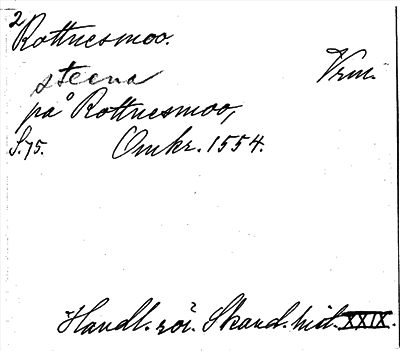 2
Rottnesmoo.
steena Vrm.
på Rottnesmoo,
S. 75. Omkr. 1554.
Handl. rör. Skand. hist. XXIX.